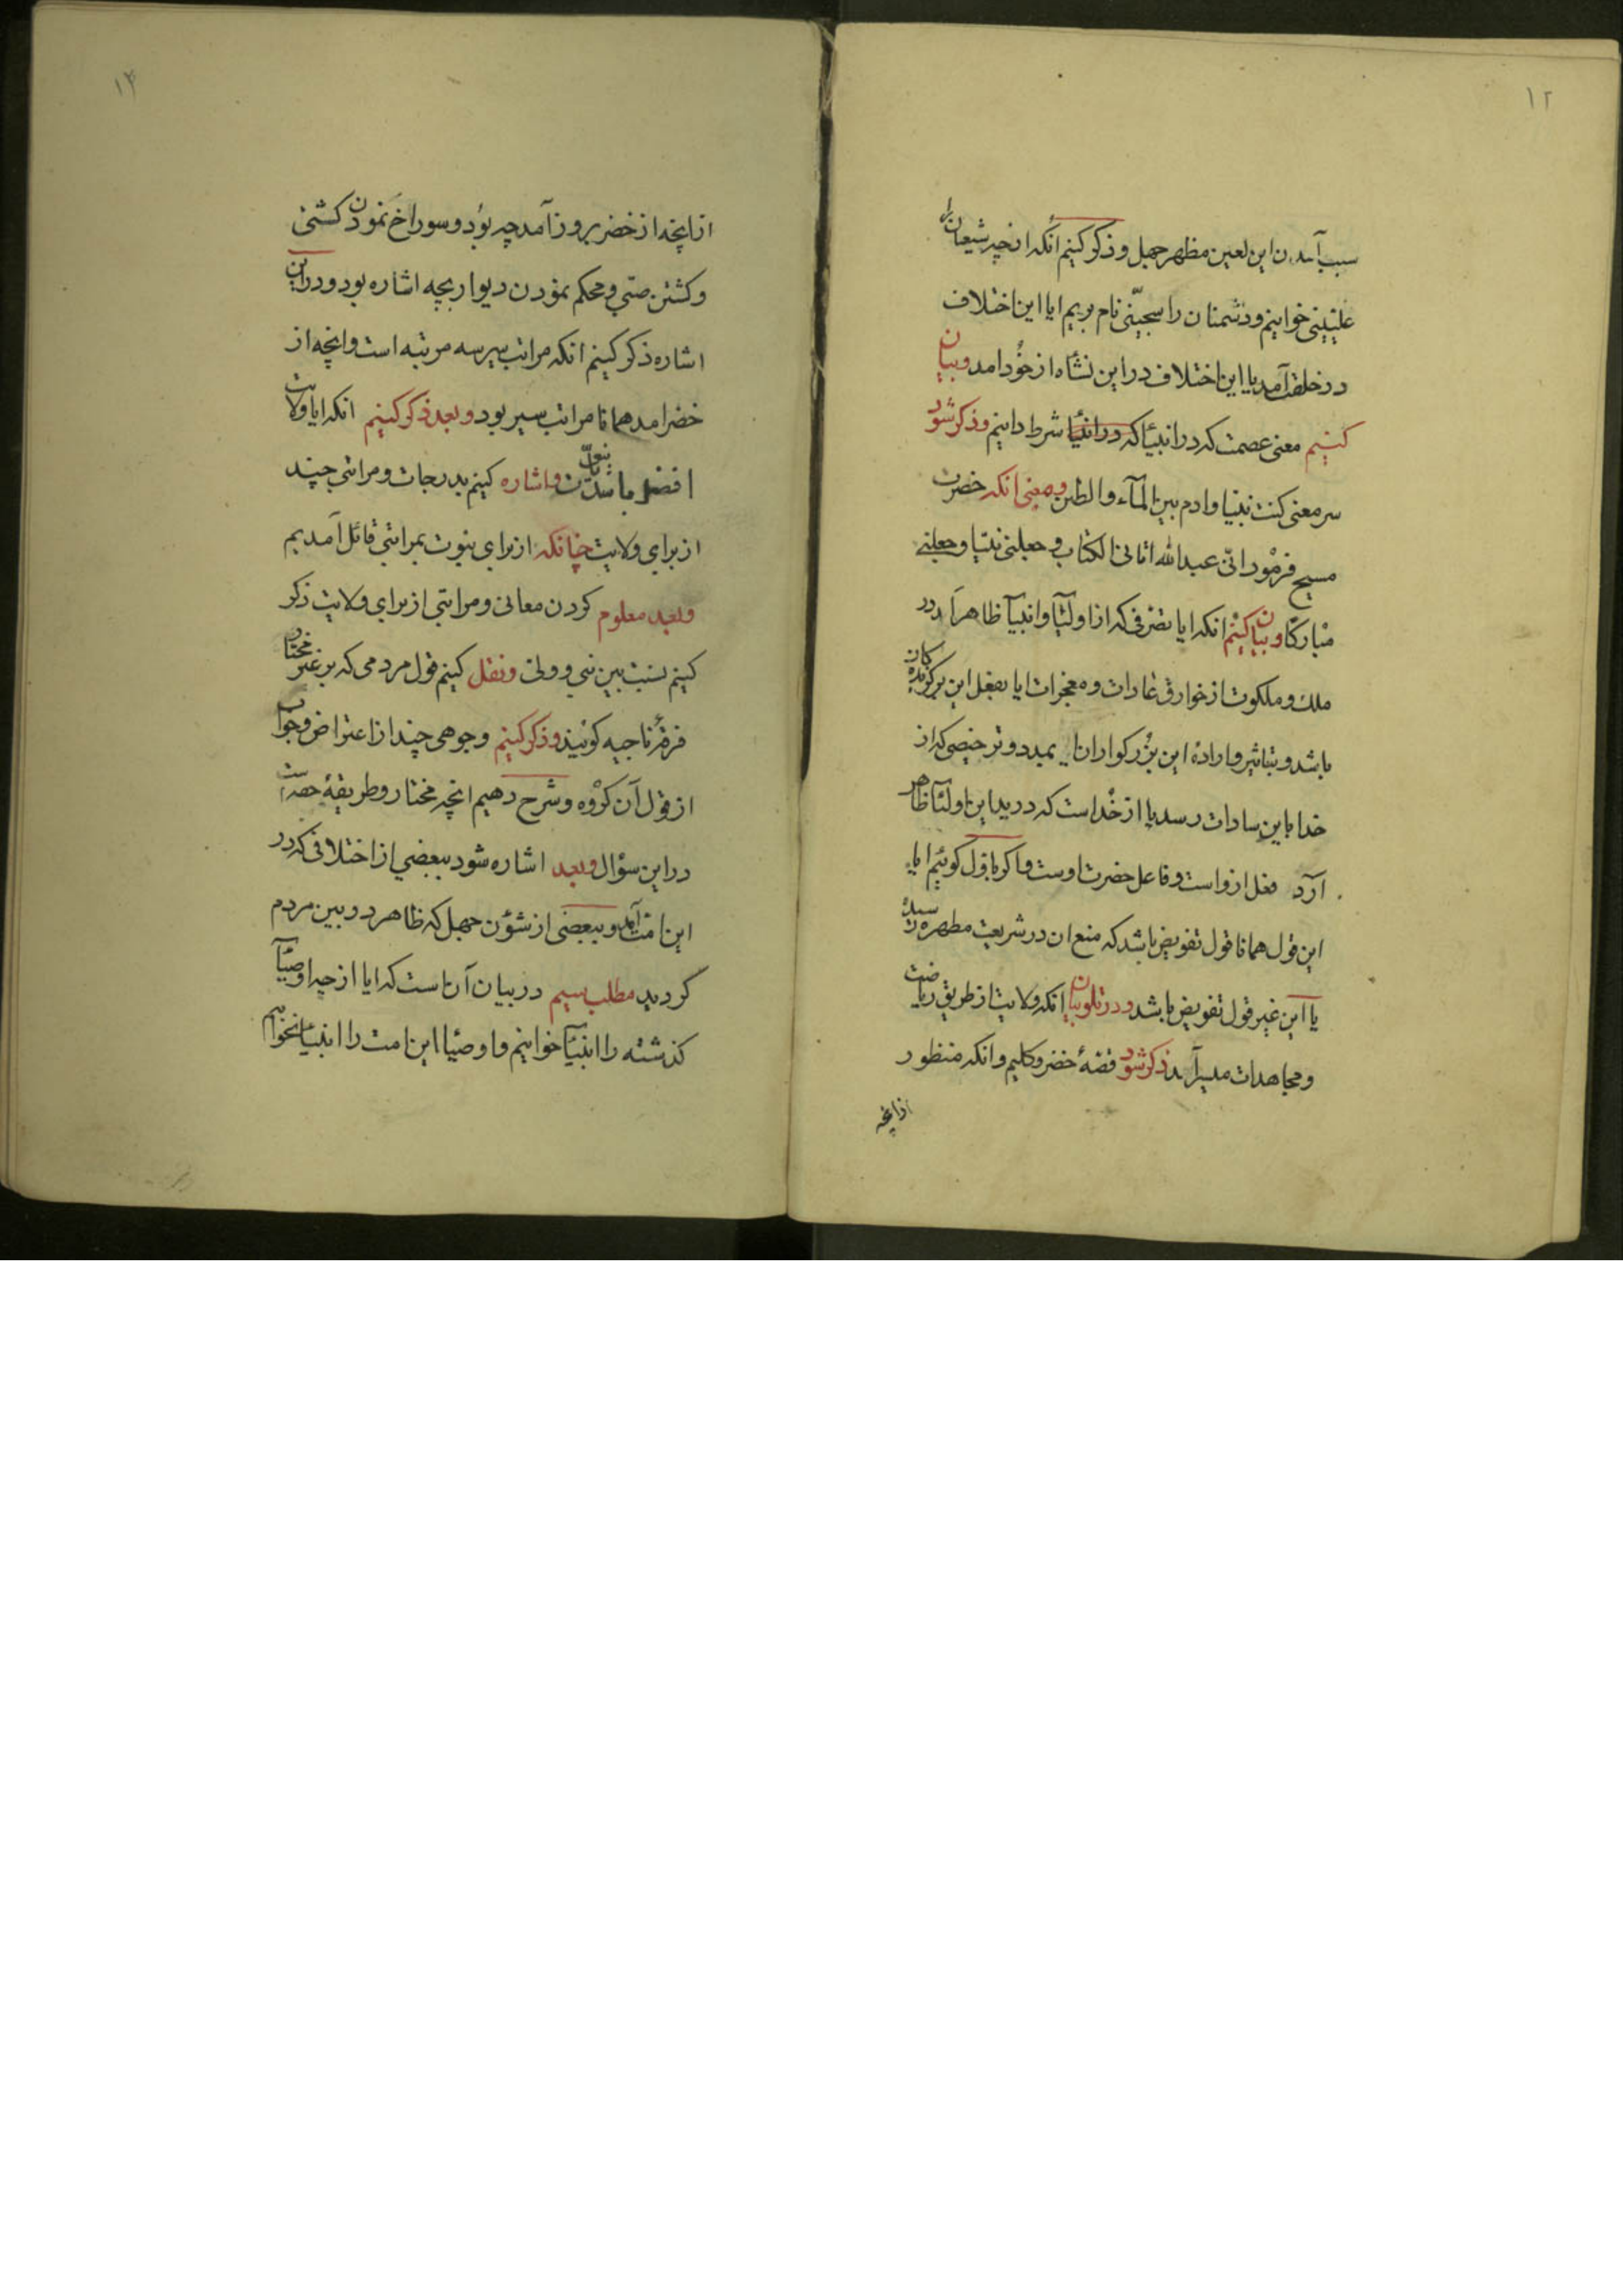 ۱۲
سبب آمدن این لعین مظهر جهل وذکر کنیم انکه از چه شیعان را
علیّینی خوانیم ودشمنان را سجیّنی نام بریم ایا این اختلاف
در خلقت آمد یا این اختلاف در این نشاه از خود امد وبیان
کنیم معنی عصمت که در انبیا که در انبیا شرط دانیم وذکر شود
سر معنی کنت نبیا وادم بین المآء والطین ومعنی انکه حضرت
مسیح فرمود انّی عبدالله اتانی الکتاب وجعلنی نبیّا وجعلنی
مبارکّا وبیان کنیم انکه ایا تصرفی که از اولیّا وانبیآ ظاهر آمد در
ملک وملکوت از خوارق عادات ومعجزات ایا بفعل این برگزیده کان
باشد وبتاثیر واراده این بزرکواران یا بمدد وترخیصی که از
خدا باین سادات رسد یا از خداست که در ید این اولیآ ظاهر
آرد فعل ازواست وفاعل حضرت اوست واکر باول کوئیم ایا
این قول همانا قول تفویض باشد که منع ان در شریعت مطهره رسیده
یا این غیر قول تفویض باشد ودر تلو بیان انکه ولایت از طریق ریاضت
ومجاهدات میسر آید ذکر شود قصهٔ خضر وکلیم وانکه منظور
ازانچه
۱۳
ازانچه از خضر بروز آمد چه بود وسوراخ نمودن کشتی
وکشتن صبّی ومحکم نمودن دیوار بچه اشاره بود ودر این
اشاره ذکر کنیم انکه مراتب سیر سه مرتبه است وانچه از
خضر امد همانا مراتب سیر بود وبعد ذکر کنیم انکه ایا ولایت
افضل باشد یا نبوّت واشاره کنیم بدرجات ومراتبی چند
از برای ولایت چنانکه از برای نبوت بمراتبی قائل آمدیم
وبعد معلوم کردن معانی ومراتبی از برای ولایت ذکر
کنیم نسبت بین نبی وولی ونقل کنیم قول مردمی که بر غیر مختار
فرقهٔ ناجیه کویند وذکر کنیم وجوهی چند از اعتراض وجواب
از قول آن کروه وشرح دهیم انچه مختار وطریقهٔ حقه است
در این سؤال وبعد اشاره شود ببعضی از اختلافی که در
این امت آمد وببعضی از شؤن جهل که ظاهر در بین مردم
کردید مطلب سیم در بیان آن است که ایا از چه اوصیّآ
کذشته را انبیّآ خوانیم واوصیّا این امت را انبیّا نخوانیم